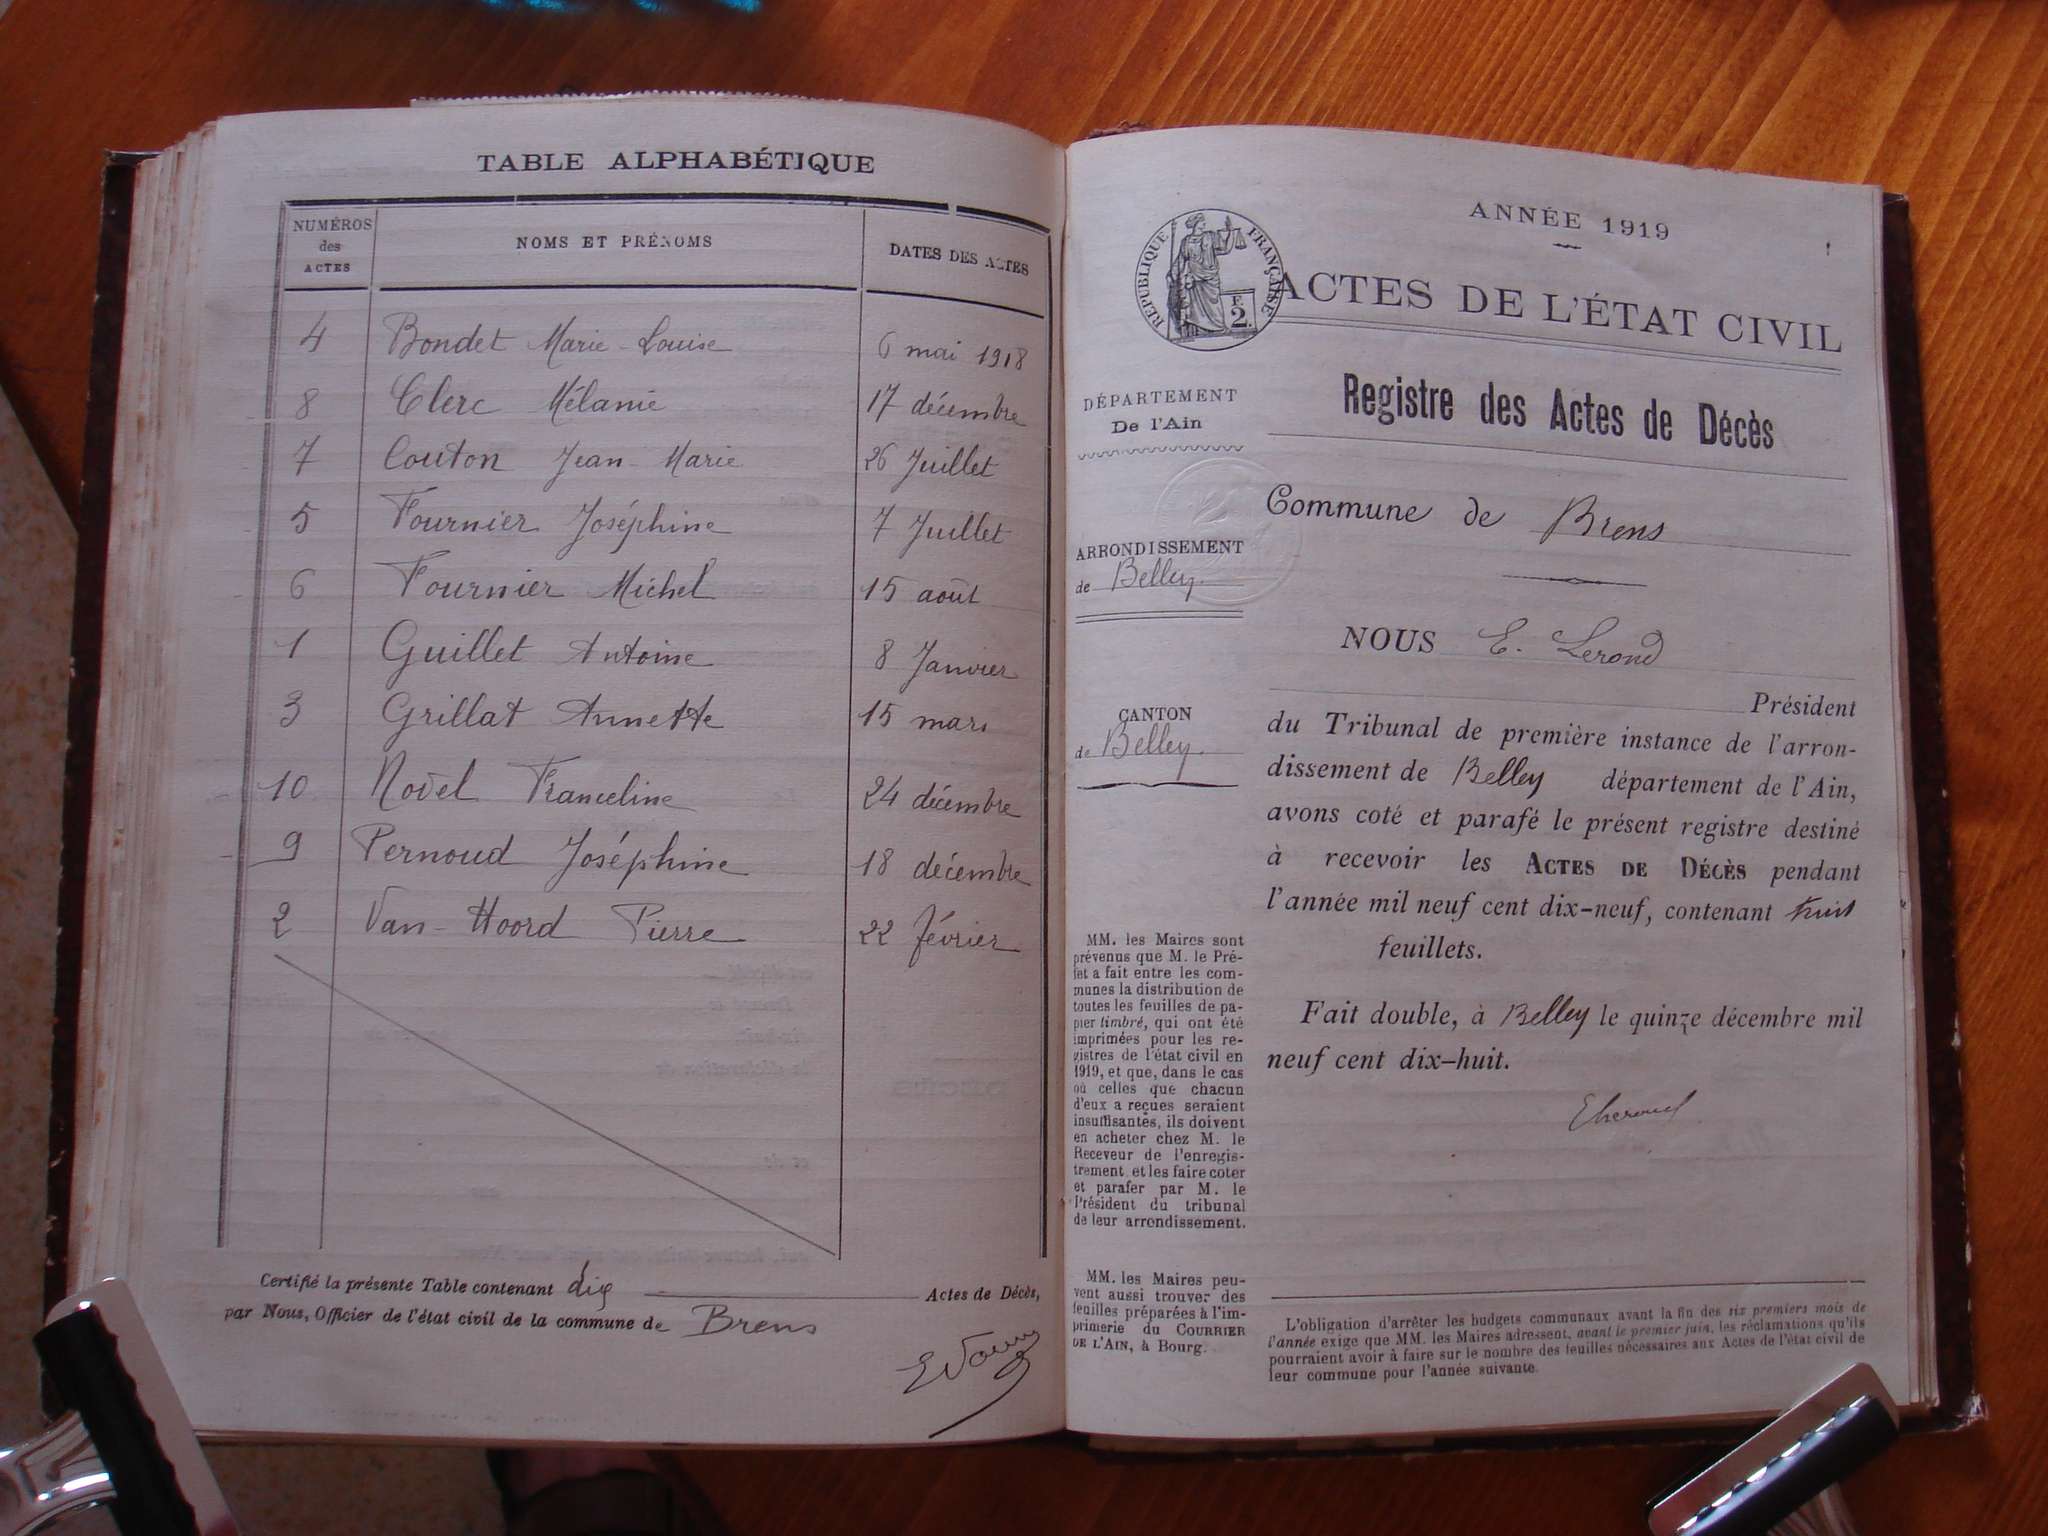 TABLE ALPHABÉTIQUE
NUMÉROS des ACTES NOMS ET PRÉNOMS DATES DES ACTES
4 Bondet Marie-Louise 6 mai 1918
8 Clerc Mélanie 17 décembre
7 Couton Jean-Marie 26 Juillet
5 Fournier Joséphine 7 Juillet
6 Fournier Michel 15 août
1 Guillet Antoine 8 Janvier
3 Grillat Annette 15 mars
10 Novel Franceline 24 décembre
9 Pernoud Joséphine 18 décembre
2 Van-Hoord Pierre 22 février
Certifié la présente Table contenant dix Actes de Décès,
par Nous, Officier de l'état civil de la commune de Brens
ANNÉE 1919
RÉPUBLIQUE FRANÇAISE
F.
2.
ACTES DE L'ÉTAT CIVIL
DÉPARTEMENT
De l'Ain
ARRONDISSEMENT
de Belley.
CANTON
de Belley.
MM. les Maires sont
prévenus que M. le Pré-
fet a fait entre les com-
munes la distribution de
toutes les feuilles de pa-
pier timbré, qui ont été
imprimées pour les re-
gistres de l'état civil en
1919, et que, dans le cas
où celles que chacun
d'eux a reçues seraient
insuffisantes, ils doivent
en acheter chez M. le
Receveur de l'enregis-
trement et les faire coter
et parafer par M. le
Président du tribunal
de leur arrondissement.
MM. les Maires peu-
vent aussi trouver des
feuilles préparées à l'im-
primerie du COURRIER
DE L'AIN, à Bourg.
Registre des Actes de Décès
Commune de Brens
NOUS E. Lerond
Président
du Tribunal de première instance de l'arron-
dissement de Belley département de l'Ain,
avons coté et parafé le présent registre destiné
à recevoir les ACTES DE DÉCÈS pendant
l'année mil neuf cent dix-neuf, contenant
feuillets.
Fait double, à Belley le quinze décembre mil
neuf cent dix-huit.
L'obligation d'arrêter les budgets communaux avant la fin des six premiers mois de
l'année exige que MM. les Maires adressent, avant le premier juin, les réclamations qu'ils
pourraient avoir à faire sur le nombre des feuilles nécessaires aux Actes de l'état civil de
leur commune pour l'année suivante.